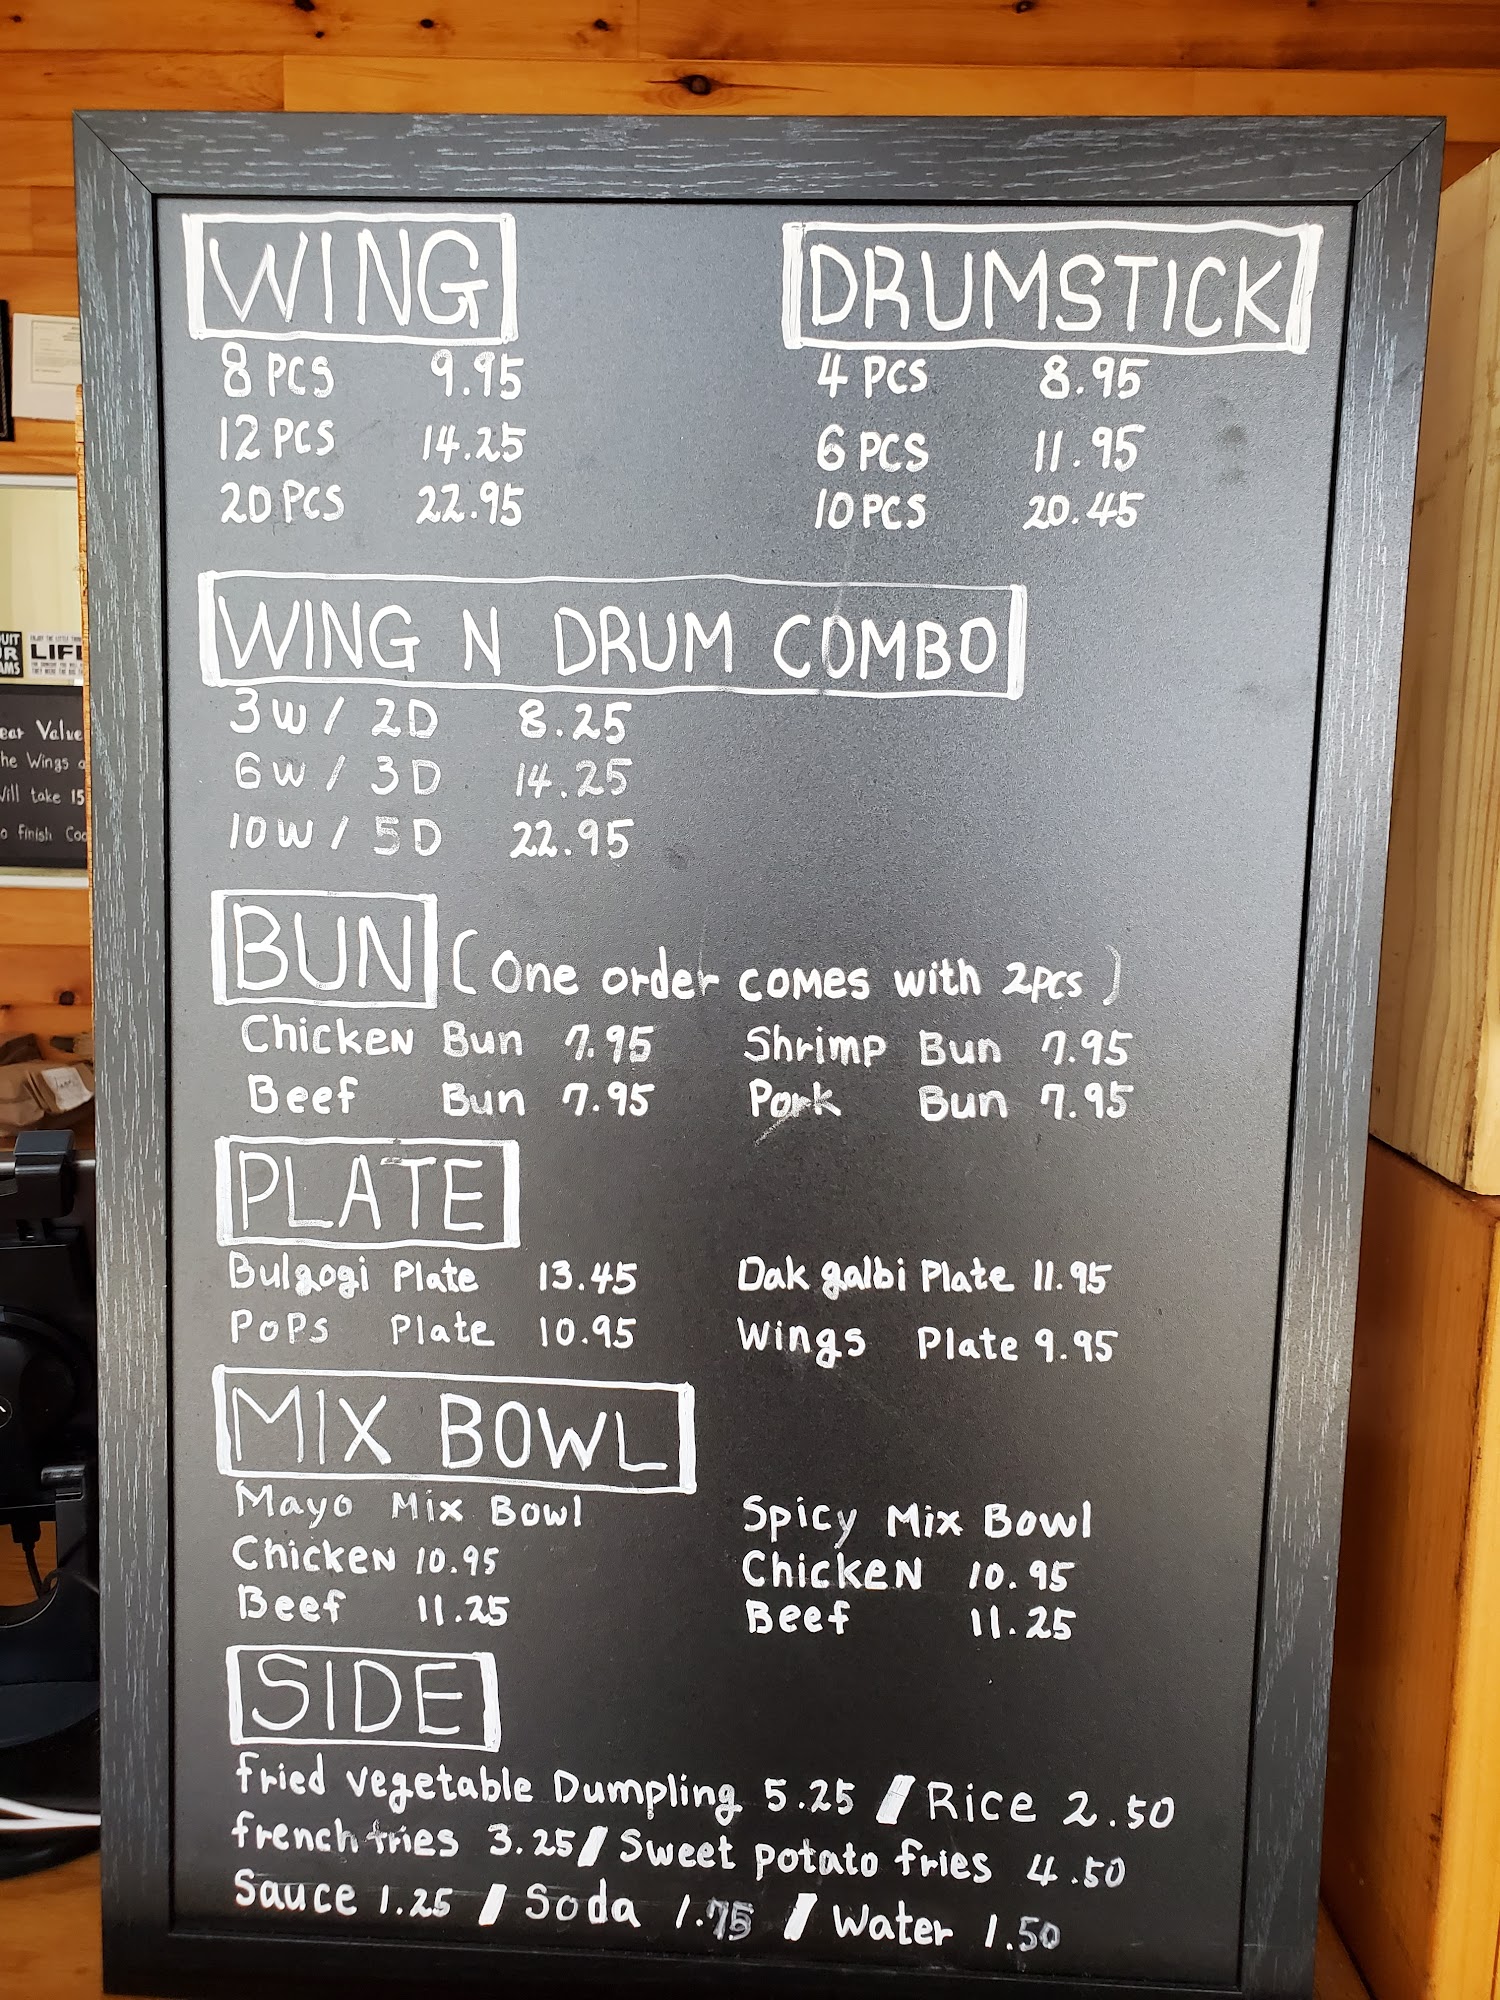 WING
8 PCS 9.95
12 PCS 14.25
20 PCS 22.95
DRUMSTICK
4 PCS 8.95
6 PCS 11.95
10 PCS 20.45
WING N DRUM COMBO
3W / 2D 8.25
6W / 3D 14.25
10W / 5D 22.95
BUN (One order comes with 2pcs)
Chicken Bun 7.95 Shrimp Bun 7.95
Beef Bun 7.95 Pork Bun 7.95
PLATE
Bulgogi Plate 13.45 Dak galbi Plate 11.95
Pops Plate 10.95 Wings Plate 9.95
MIX BOWL
Mayo Mix Bowl
Chicken 10.95
Beef 11.25
Spicy Mix Bowl
Chicken 10.95
Beef 11.25
SIDE
fried vegetable Dumpling 5.25 / Rice 2.50
french fries 3.25 / Sweet potato fries 4.50
Sauce 1.25 / Soda 1.75 / Water 1.50
LIF
Value
Wings
take 15
finish